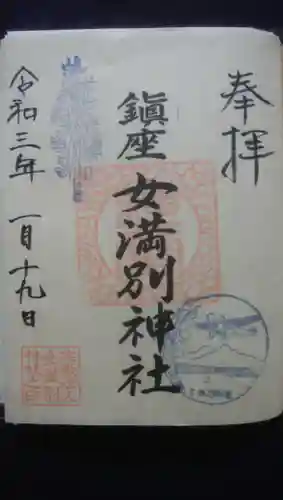 奉拝
鎮座
女満別神社
令和三年 一月十九日